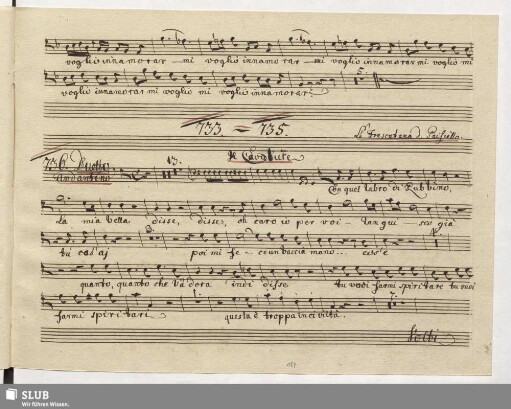 voglio innamorar - mi voglio innamorar - mi voglio innamorar mi voglio mi
voglio innamorar mi voglio mi voglio innamorar.
733. = 735.
La Frascatana d. Paisiello
736. Duetto
Andantino
13.
Il Cavaliere
Con quel labro di Rubbino,
la mia bella disse, disse, oh caro io per voi -
già
tu
poi mi fe - ce un baccia mano ...
quanto, quanto che
indi disse tu vuoi farmi spiritare tu vuoi
farmi spiritari questa è troppa inciviltà.
Volti
SLUB
Wir führen Wissen.